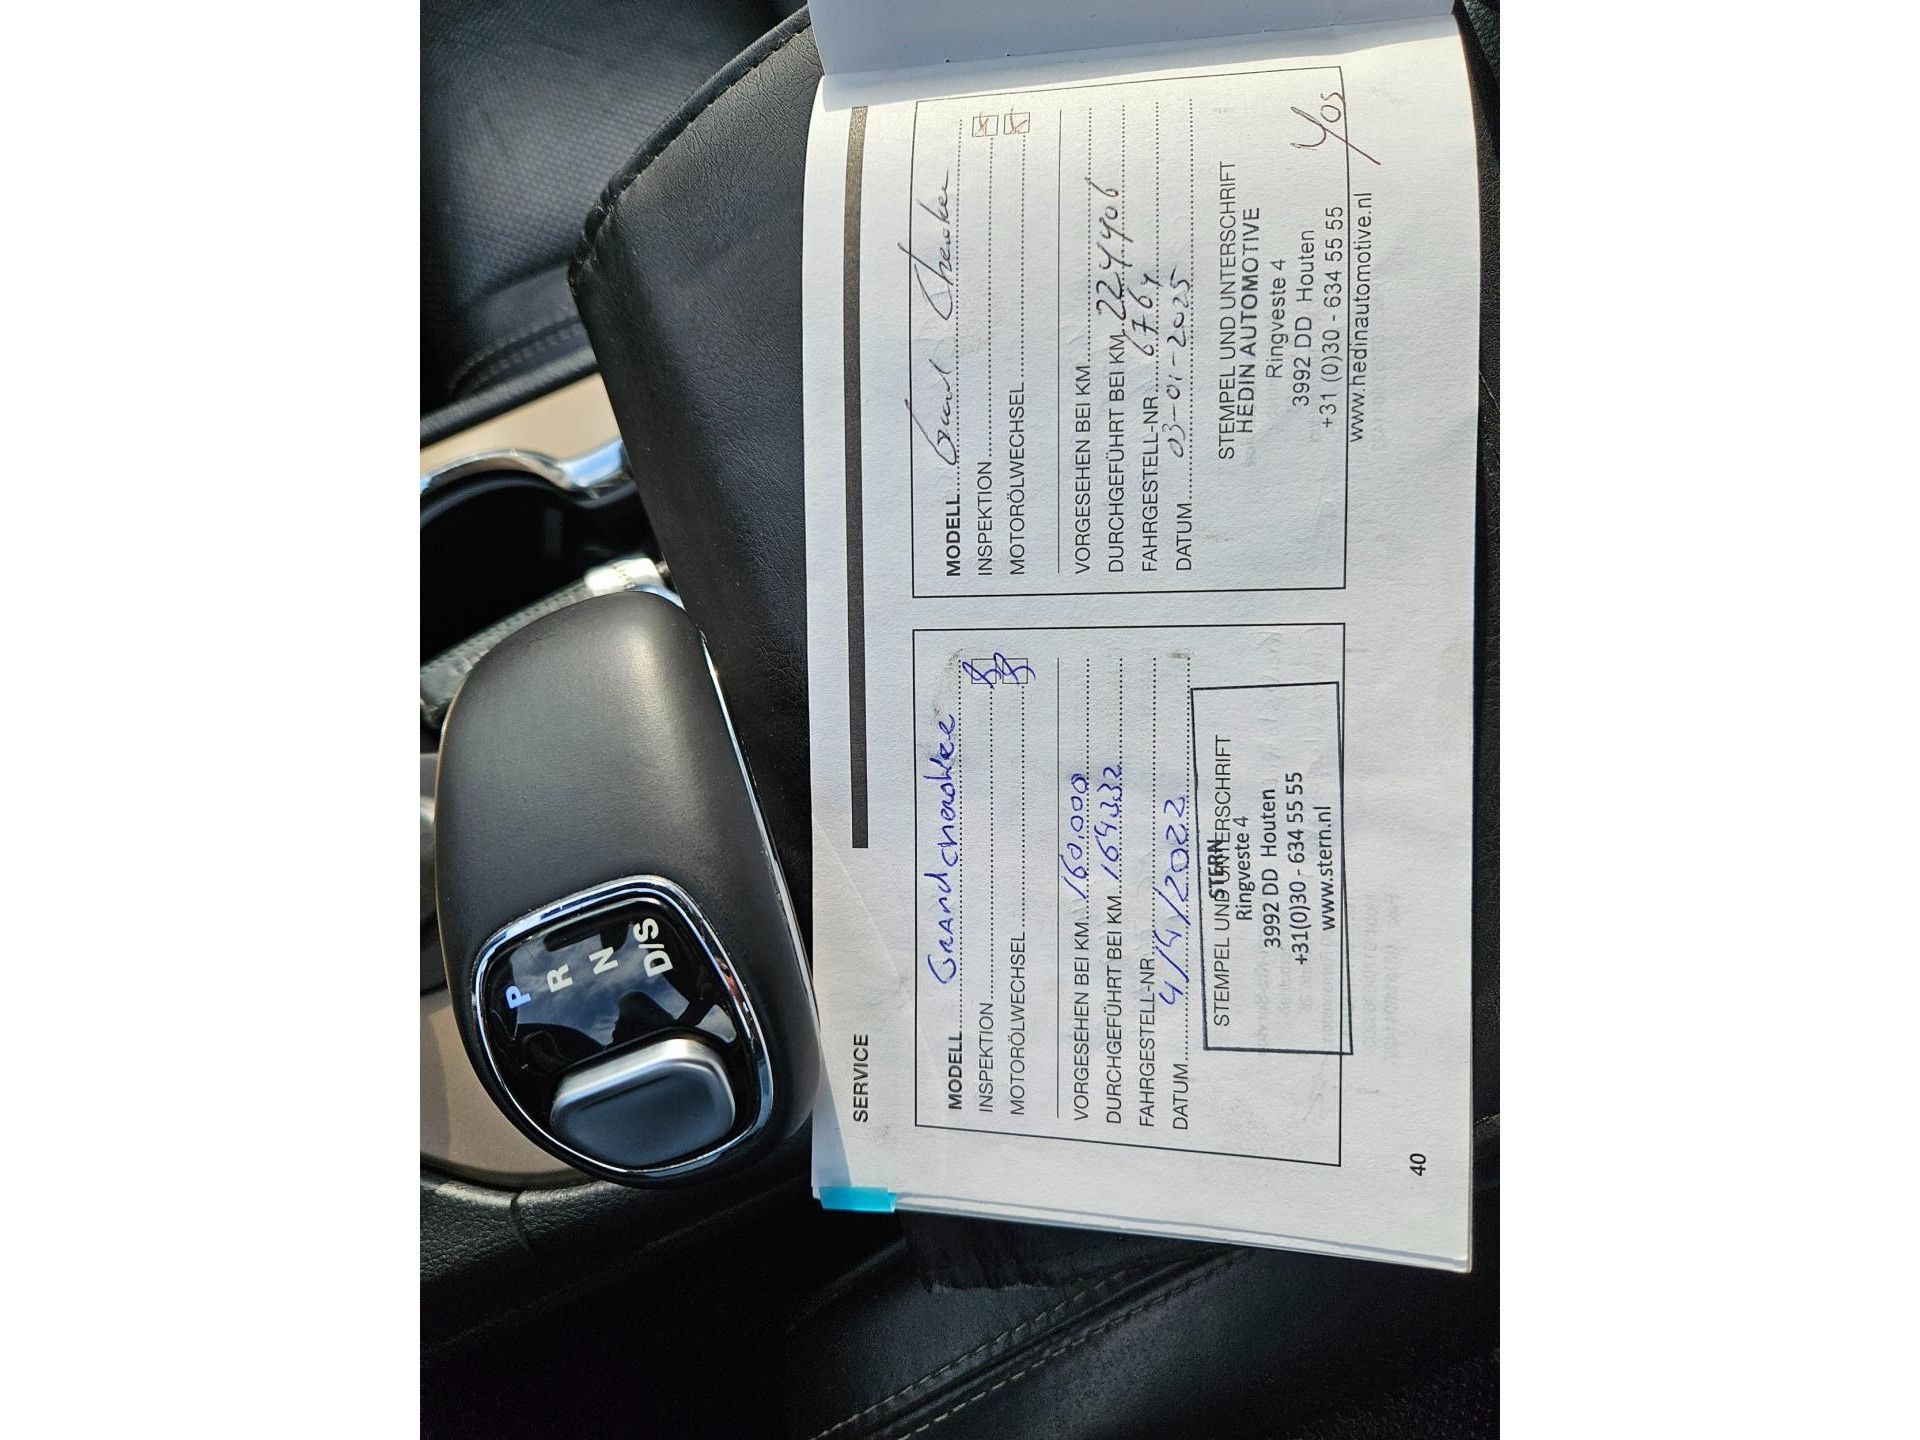 SERVICE
MODELL Grand cherokee
INSPEKTION
MOTORÖLWECHSEL
VORGESEHEN BEI KM 160.000
DURCHGEFÜHRT BEI KM 164332
FAHRGESTELL-NR.
DATUM 4/4/2022
STEMPEL UND UNTERSCHRIFT
STERN
Ringveste 4
3992 DD Houten
+31(0)30 - 634 55 55
www.stern.nl
40
MODELL Grand Cherokee
INSPEKTION
MOTORÖLWECHSEL
VORGESEHEN BEI KM
DURCHGEFÜHRT BEI KM 224406
FAHRGESTELL-NR. 6764
DATUM 03-01-2025
STEMPEL UND UNTERSCHRIFT
HEDIN AUTOMOTIVE
Ringveste 4
3992 DD Houten
+31 (0)30 - 634 55 55
www.hedinautomotive.nl
P
R
N
D/S